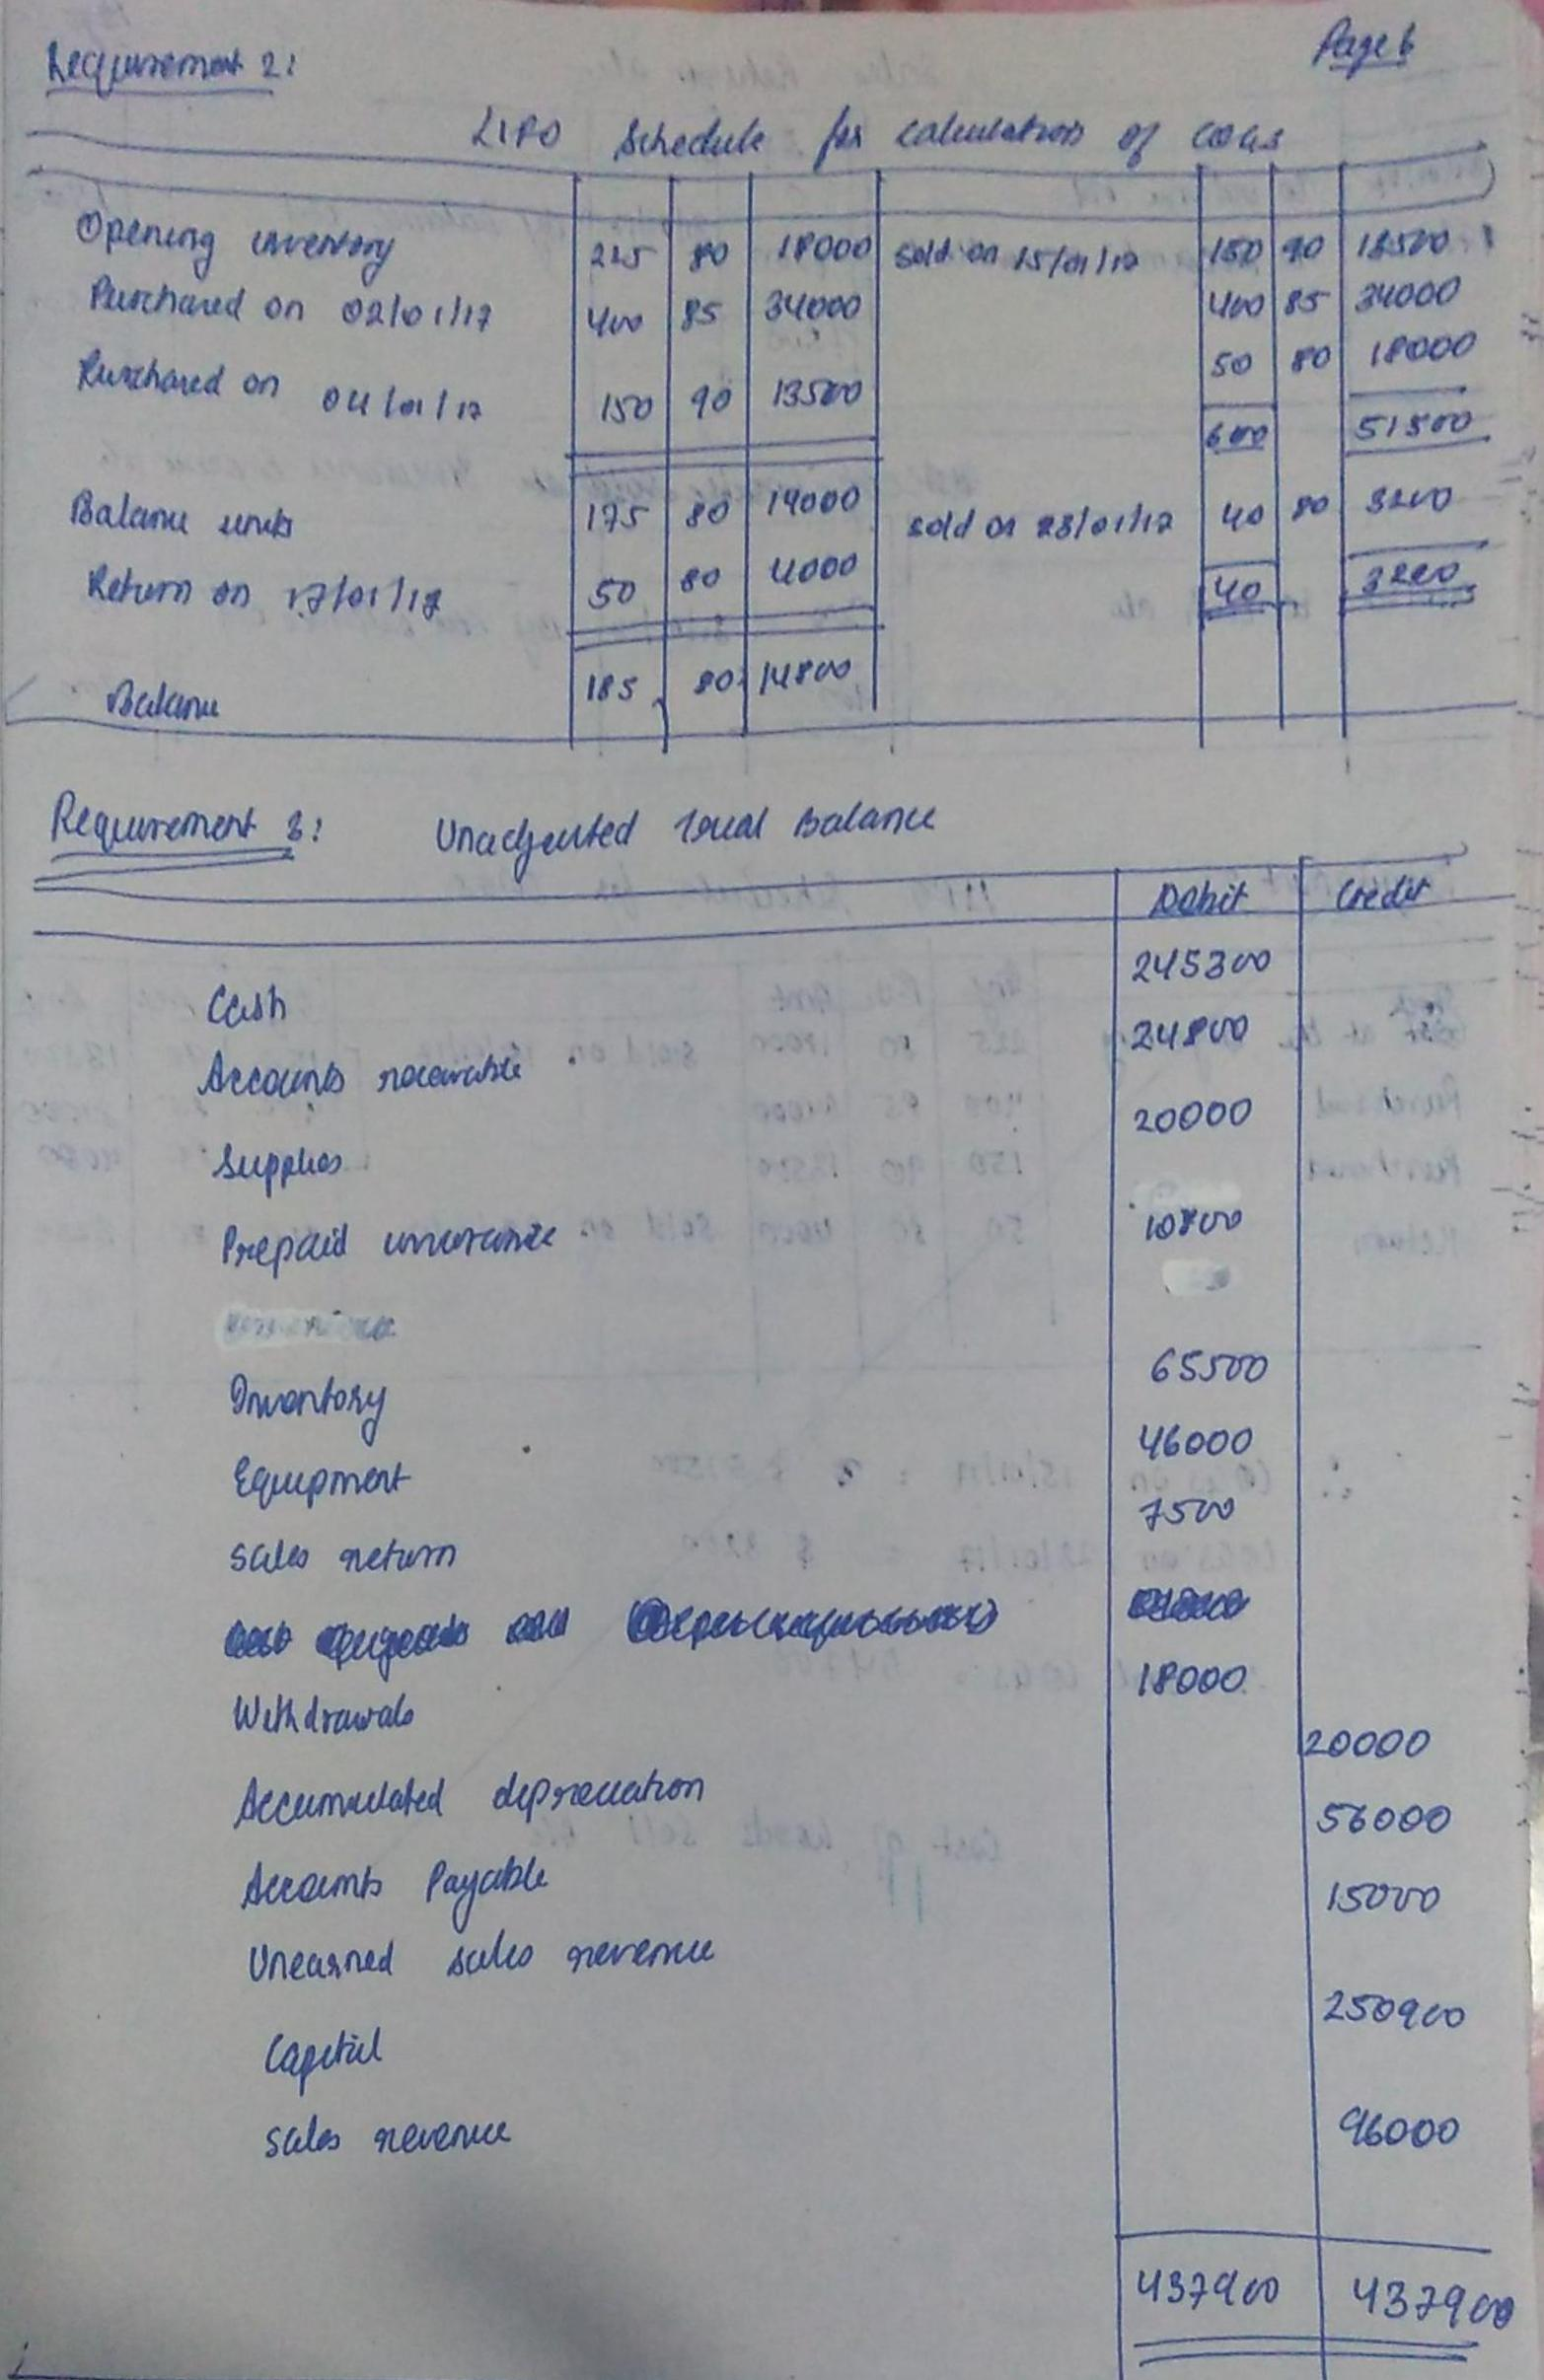 Page 6
Requirement 2:
LIFO Schedule for calculation of COGS
Opening inventory 225 80 18000 sold on 15/01/17 150 90 13500
Purchased on 02/01/17 400 85 34000 400 85 34000
Purchased on 04/01/17 150 90 13500 50 80 18000
600 51500
Balance units 175 80 14000 sold on 23/01/17 40 80 3200
Return on 17/01/17 50 80 4000 40 3200
Balance 185 80 14800
Requirement 3: Unadjusted Trial Balance
Debit Credit
Cash 245300
Accounts receivable 24800
Supplies 20000
Prepaid insurance 10800
Inventory 65500
Equipment 46000
Sales return 7500
Withdrawals 18000
Accumulated depreciation 20000
Accounts Payable 56000
Unearned sales revenue 15000
Capital 250900
Sales revenue 96000
437900 437900